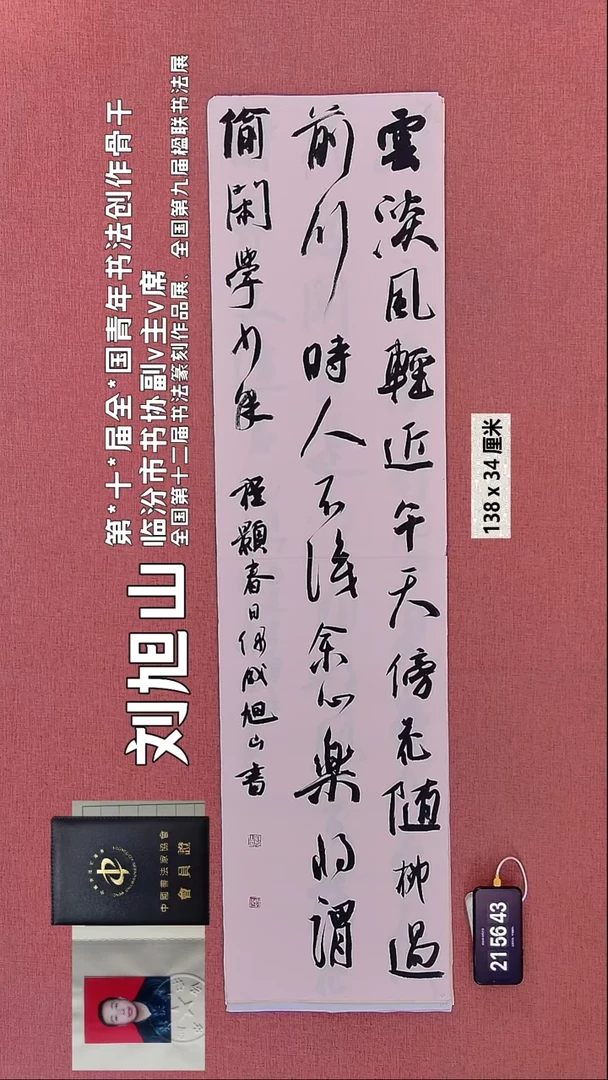 雲淡風輕近午天傍花随柳過
前川時人不識余心樂将謂
偷閑學少年 程顥春日偶成旭山書
第*十*届全*国青年书法创作骨干
临汾市书协副v主v席
全国第十二届书法篆刻作品展、全国第九届楹联书法展
刘旭山
中國書法家協會
會員證
138 x 34 厘米
21 56 43